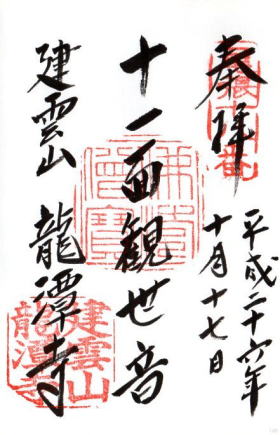 奉拝
平成二十六年
十月十七日
十一面観世音
建雲山 龍潭寺
佛法僧寶
建雲山
龍潭寺